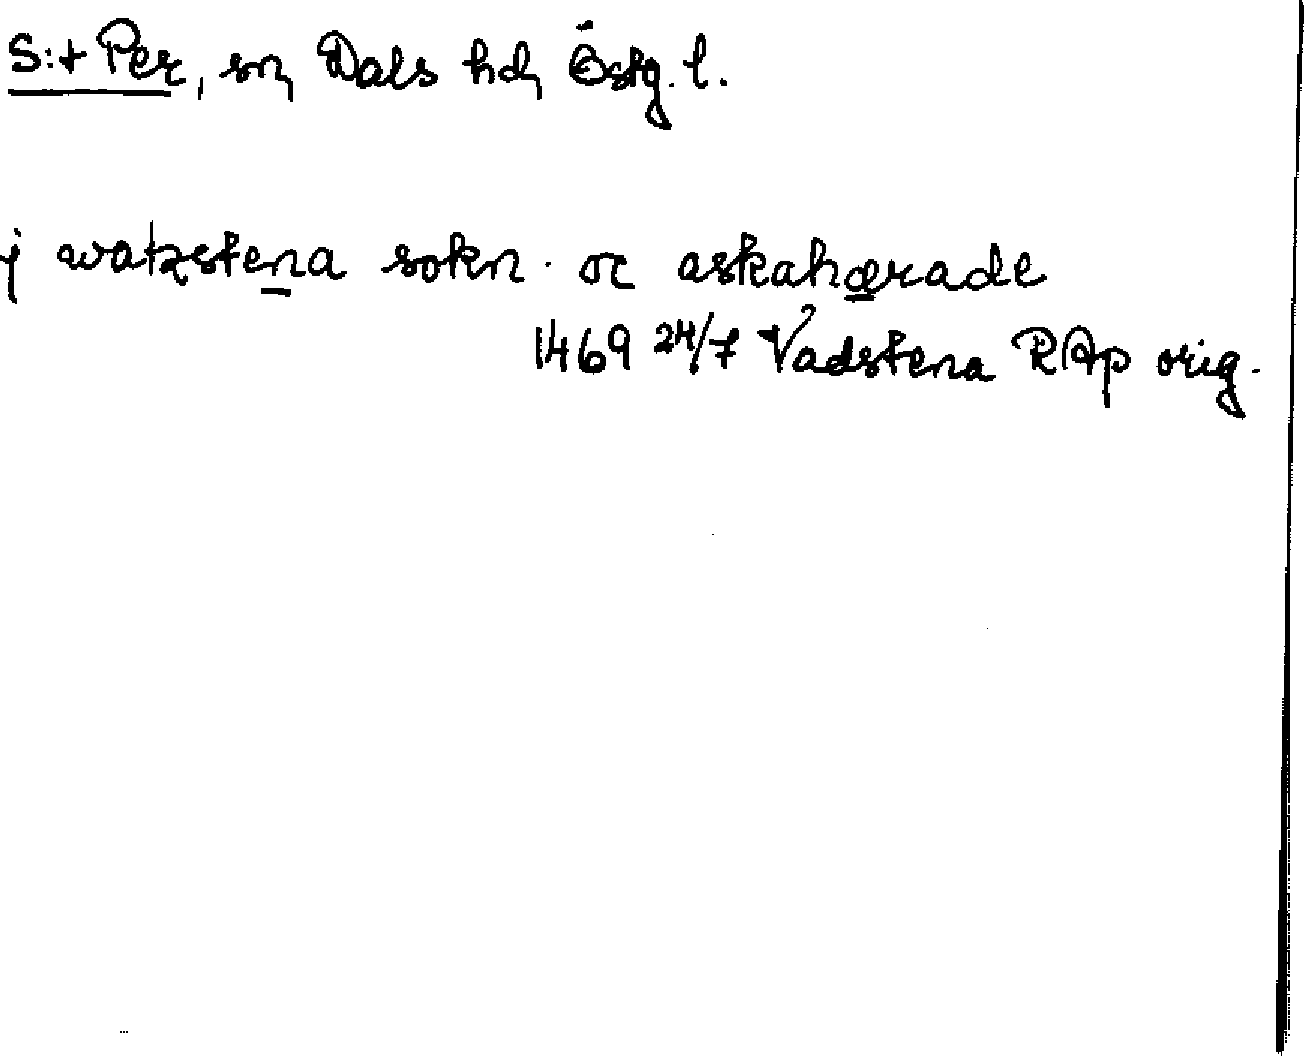 S:t Per, sn, Dals hd, Östg. l.
j watzstena sokn. oc askahærade
1469 24/7 Vadstena RAp orig.